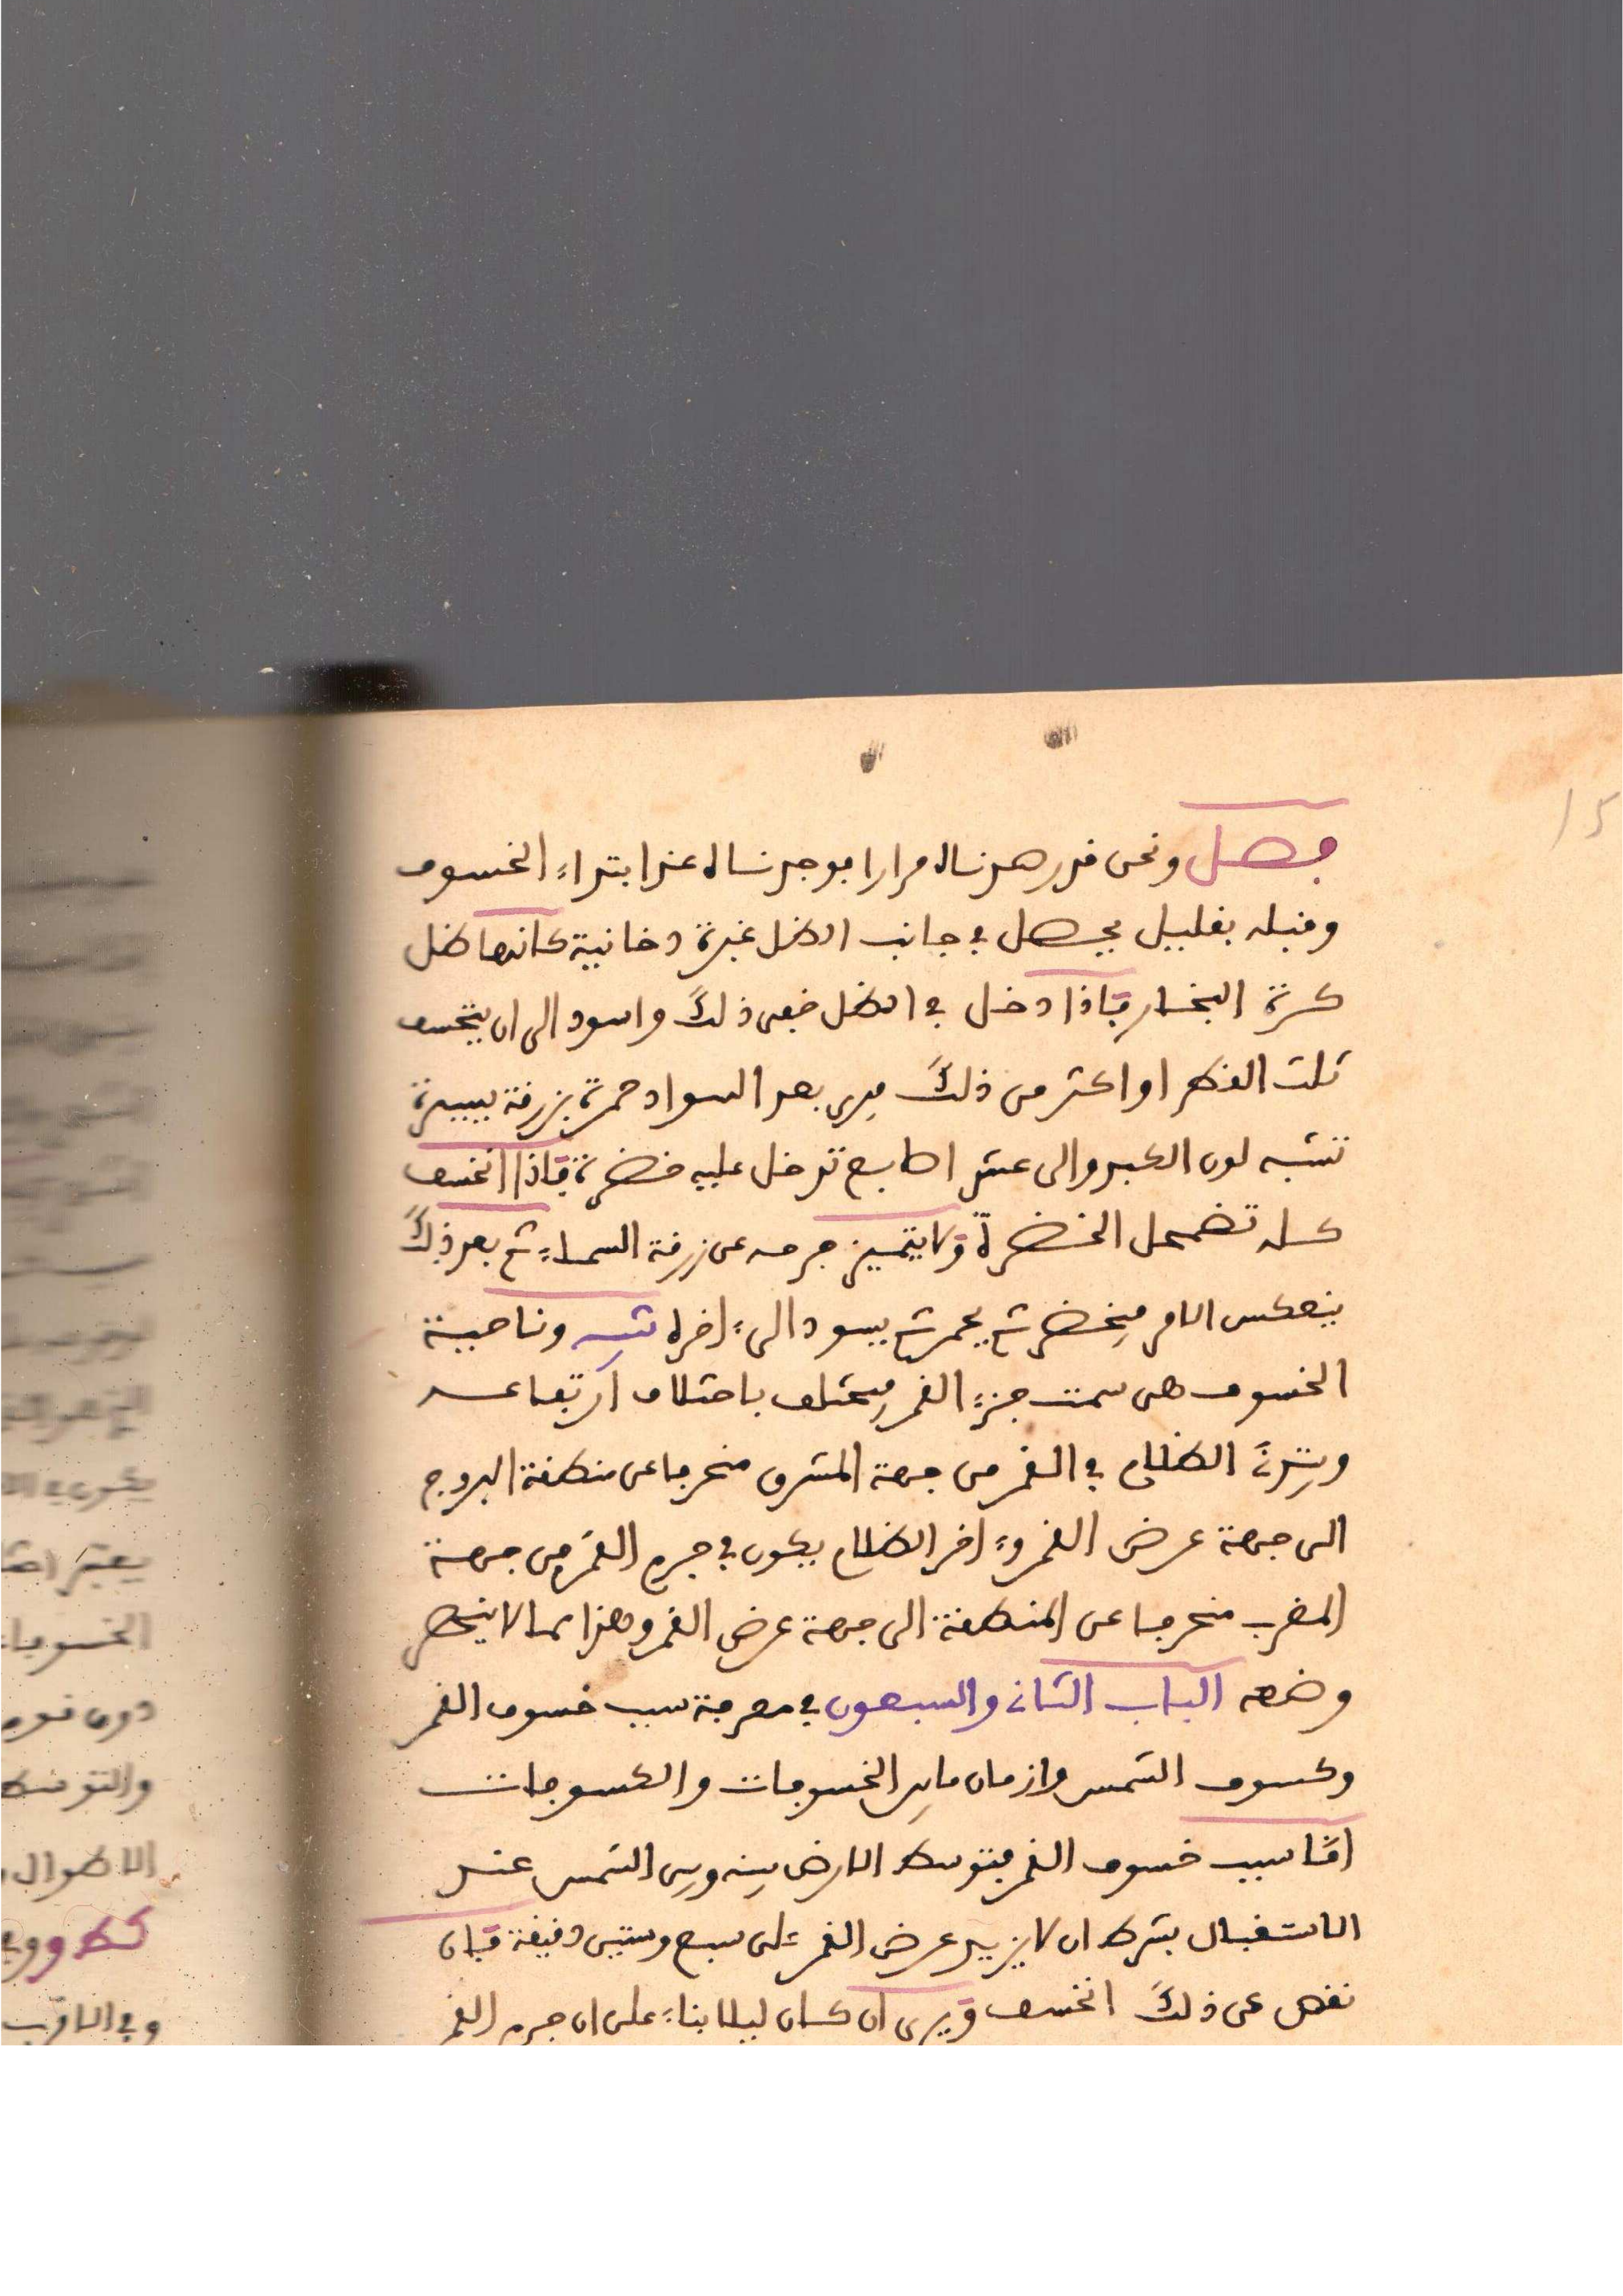 فصل ونحن قد رصدناه مرارا فوجدناه عند ابتداء الخسوف
وقبله بقليل يحصل في جانب الظل غبرة دخانية كانها ظل
كرة البخار فاذا دخل في الظل خفى ذلك واسود الى ان ينخسف
ثلث القطر او اكثر من ذلك فيرى بعد السواد حمرة بزرقة يسيرة
تشبه لون الكبد والى عشر اصابع تدخل عليه خضرة فاذا انخسف
كله تضمحل الخضرة ولا يتميز جرمه عن زرقة السماء ثم بعد ذلك
ينعكس الامر فيخضر ثم يحمر ثم يسود الى ءاخره تنبيه وناحية
الخسوف هي سمت جزء القمر فيختلف باختلاف ارتفاعه
ويبتدئ الظلام في القمر من جهة المشرق منحرفا عن منطقة البروج
الى جهة عرض القمر وءاخر الظلام يكون في جرم القمر من جهة
المغرب منحرفا عن المنطقة الى جهة عرض القمر وهذا مما لا ينحصر
وضعه الباب الثاني والسبعون في معرفة سبب خسوف القمر
وكسوف الشمس وازمان ما بين الخسوفات والكسوفات
امّا سبب خسوف القمر فتوسط الارض بينه وبين الشمس عند
الاستقبال بشرط ان لا يزيد عرض القمر على سبع وستين دقيقة فان
نقص عن ذلك انخسف ويرى ان كان ليلا بناء على ان جرم القمر
15